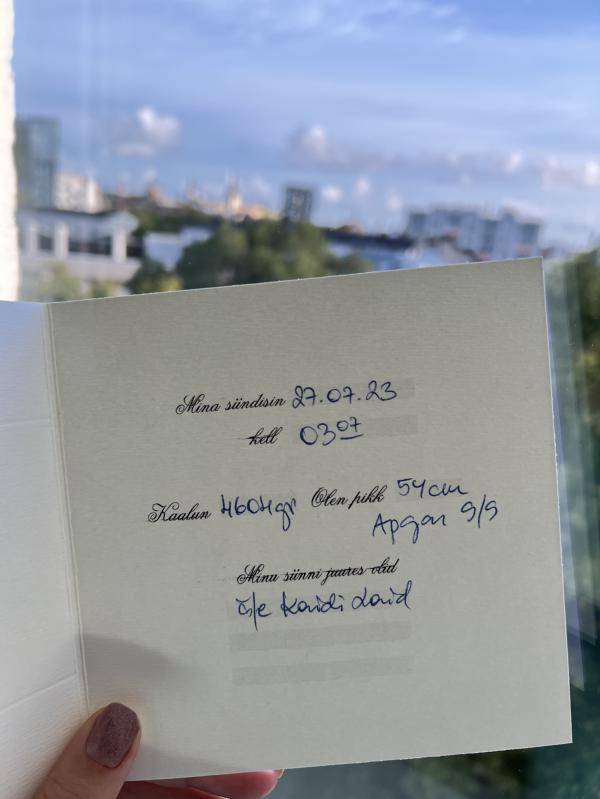 Mina sündisin 27.07.23
kell 03 07
Kaalun 4604gr Olen pikk 54cm
Apgar 9/9
Minu sünni juures olid
ä/e Kaidi Laid